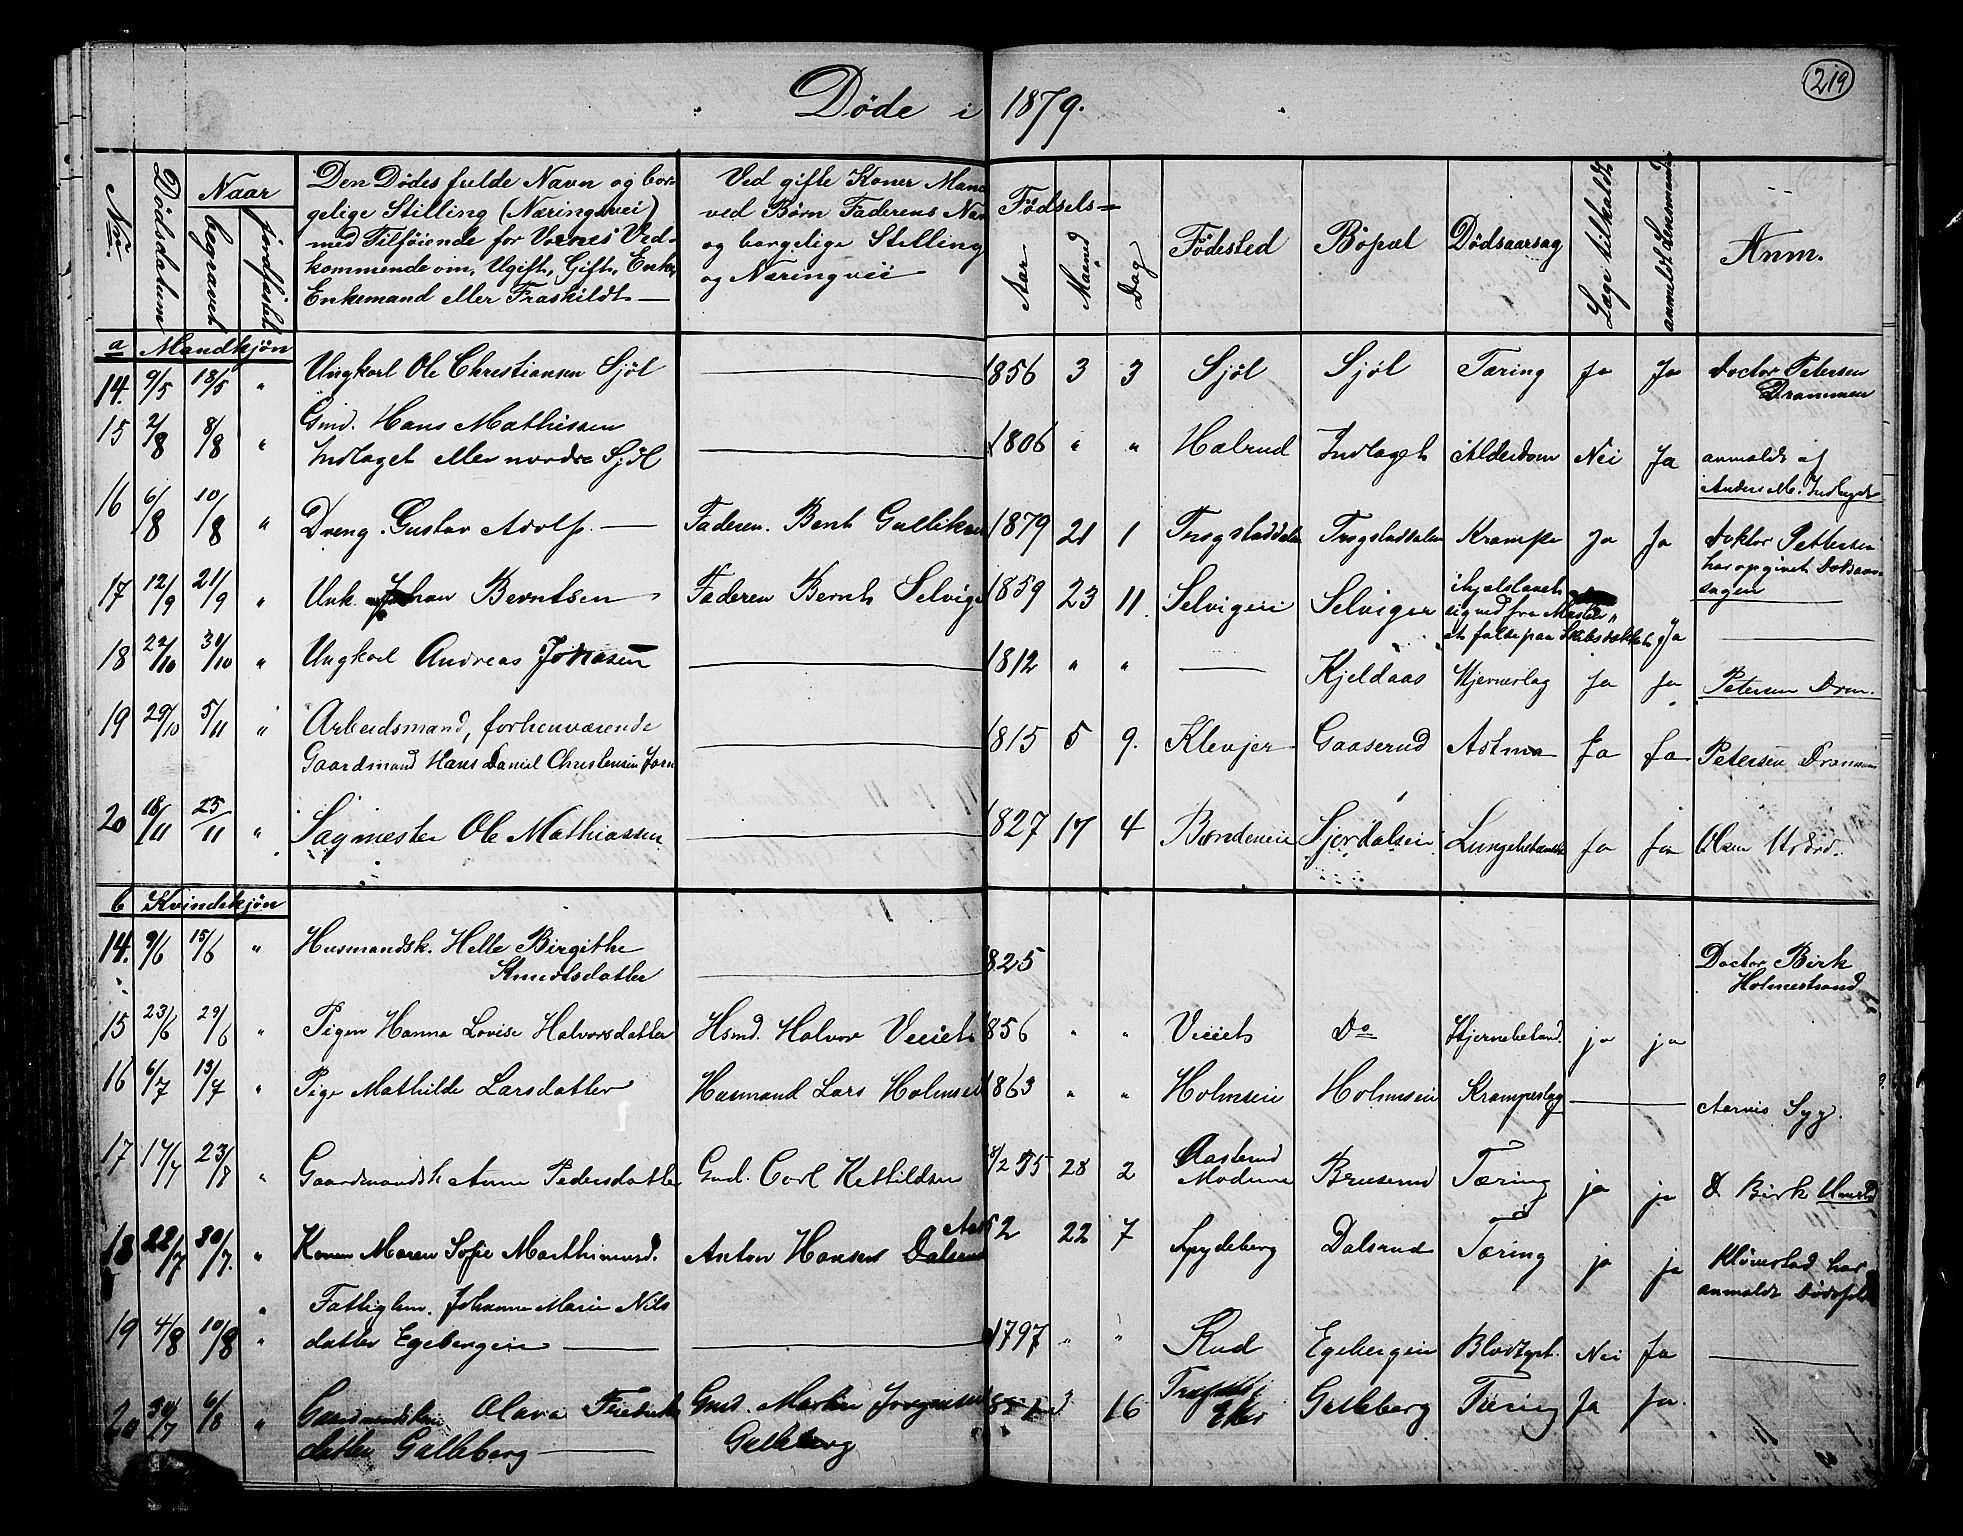 Døde i 1879.
219
Nr.
Dødsdatum
Naar
begravet
jordfæstet
Den Dødes fulde Navn og bor-
gelige Stilling (Næringsvei)
med Tilføiende for Voxnes Ved-
kommende om, Ugift, Gift, Enke,
Enkemand eller Fraskildt
Ved gifte Koner Mand
ved Børn Faderens Nav
og borgelige Stilling
og Næringveii
Fødsels=
Aar
Maaned
Dag
Fødested
Bopæl
Dødsaarsag
Læge tilkaldt
anmeldt Lensmanden
Anm.
a Mandkjøn
14. 9/5 18/5 " Ungkarl Ole Christiansen Sjøl 1856 3 3 Sjøl Sjøl Tæring Ja Ja Doctor Petersen
Drammen
15 2/8 8/8 " Gmd. Hans Mathissen
Indlaget eller nordre Sjøl 1806 " " Halrud Indlaget Alderdom Nei Ja anmeldt af
Anders M. Indlaget
16 6/8 10/8 " Dreng. Gustav Adolf. Faderen. Bent Gulliksen 1879 21 1 Krampe Ja Ja Doktor Pettersen
har opgivet Dødsaar-
sagen
17 12/9 21/9 " Unk. Johan Berntsen Faderen Bernt Selvige 1859 23 11. Selvigeii Selviger ihjelslaaet
sig ved fra Masten
at falde paa Skibsdækket Ja
18 22/10 30/10 " Ungkarl Andreas Johasen 1812 " " Kjeldaas Hjerneslag Ja Ja Petersen Dram.
19 29/10 5/11 " Arbeidsmand, forhenværende
Gaardmand Hans Daniel Christensen 1815 5 9. Klevjer Gaaserud Astma Ja Ja Petersen Drammen
20 18/11 23/11 " Sagmester Ole Mathiassen 1827 17 4 Sjordalseii Lungebetændelse Ja Ja Olsen
b Kvindekjøn
14. 9/6 15/6 " Husmandsk. Helle Birgithe
Knudtsdatter 1825 Doctor Birk
Holmestrand
15 23/6 29/6 " Pigen Hanna Lovise Halvorsdatter Hsmd. Halvor Veiiets 1856 " " Veiiets Do Hjernebetænd. ja ja
16 6/7 13/7 " Pige Mathilde Larsdatter Husmand Lars Holmseii 1863 " " Holmseii Holmseii Krampeslag Aarvis Syg.
17 17/7 23/8 " Gaardmandsk Anne Pedersdatter Gmd. Carl Kettildsen 28 2 Aaserud
Modum Bruserud Tæring ja ja D. Birk
18 22/7 30/7. " Konen Maren Sofie Marthinusd. Anton Hansen Dalsrud 52 22 7 Spydeberg Dalsrud Tæring ja ja Kløverstad har
anmeldt Dødsfald
19 4/8 10/8 " Fattiglem. Johanne Marie Nils
datter Egebergeiie 1797 " " Rud Egebergeiie Blodtyst. Nei Ja
20 30/7 6/8 " Gaardmandskone Olava Fredriks
datter Galleberg Gmd. Martin Jørgensen
Galleberg 3 16 Eker Galleberg Tæring Ja Ja.